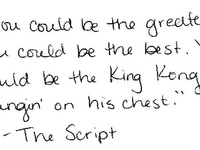 ou could be the greate
u could be the best. Y
uld be the King Kong
angin' on his chest."
--The Script